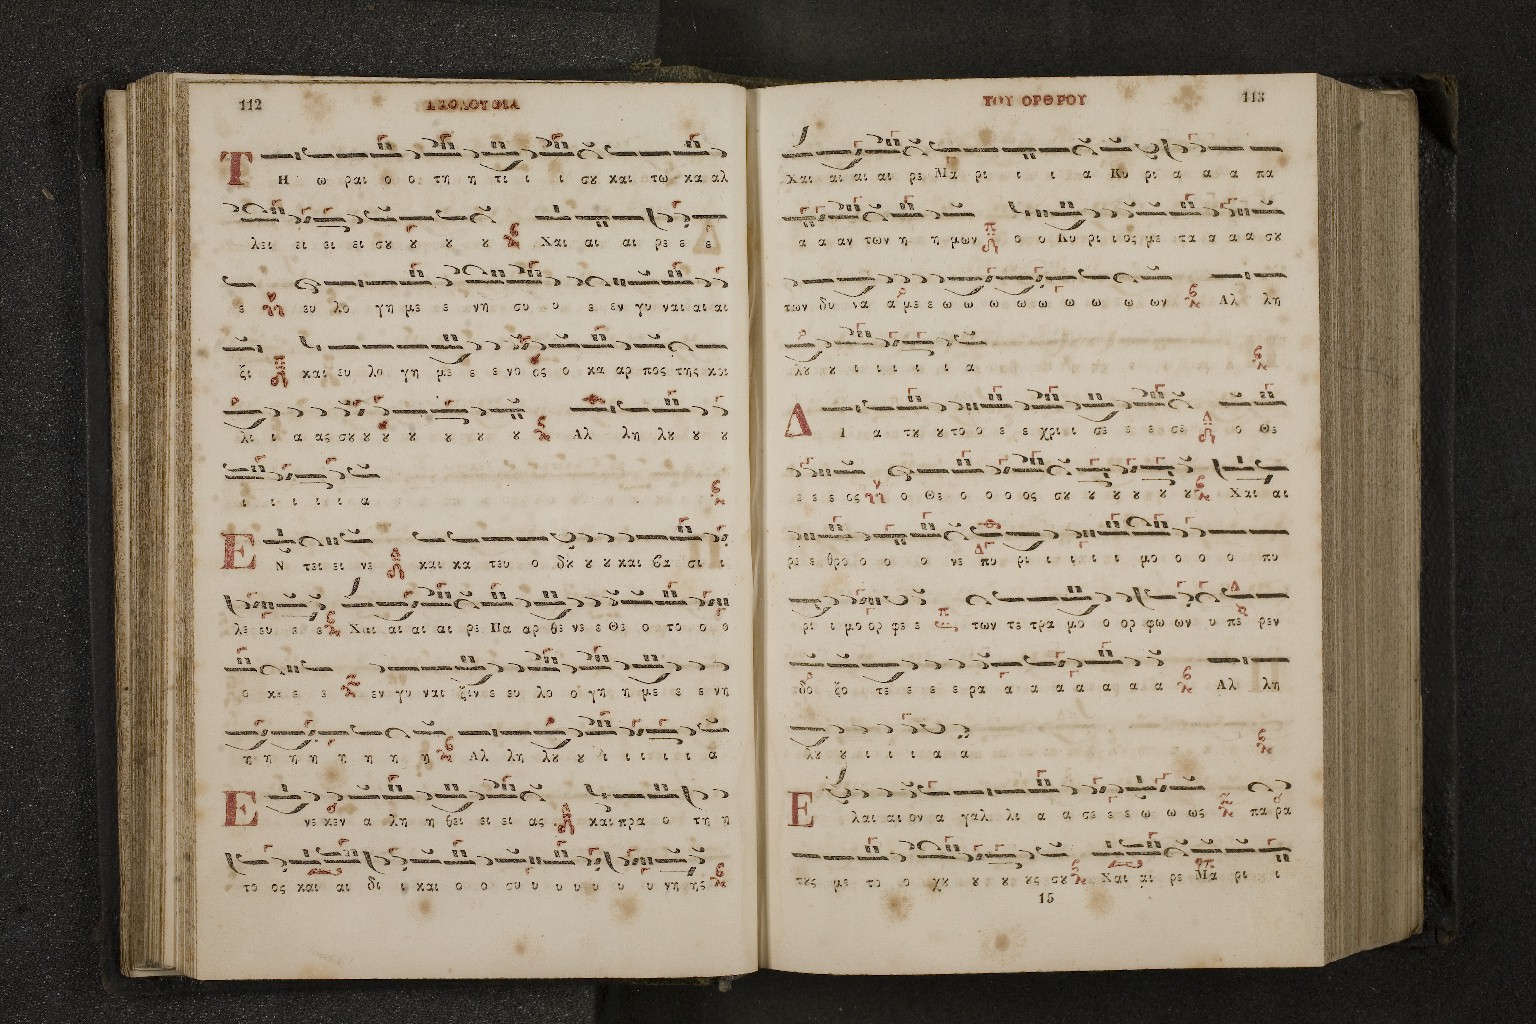 112 ΑΚΟΛΟΥΘΙΑ
Τ Η ω ραι ο ο τη η τι ι ι σȣ και τω κα αλ
λει ει ει ει σȣ ȣ ȣ ȣ Χαι αι αι ρε ε ε
ε ευ λο γη με ε νη συ υ ε εν γυ ναι αι αι
ξι και ευ λο γη με ε ε νο ος ο κα αρ πος της κοι
λι ι α ας σȣ ȣ ȣ ȣ ȣ ȣ ȣ Αλ λη λȣ ȣ ȣ
ι ι ι ι ι α
Ε Ν τει ει νε και κα τευ ο δȣ ȣ ȣ και βα σι ι
λε ευ ε ε Χαι αι αι αι ρε Πα αρ θε νε ε Θε ο το ο ο
ο κε ε ε εν γυ ναι ξιν ε ευ λο ο γη η με ε ε νη
η η η η η η η η Αλ λη λȣ ȣ ι ι ι ι ι α
Ε νε κεν α λη η θει ει ει ας και πρα ο τη η
το ος και αι δι ι και ο ο συ υ υ υ υ υ υ νη ης
ΤΟΥ ΟΡΘΡΟΥ 113
Χαι αι αι αι ρε Μα ρι ι ι α Κυ ρι α α α πα
α α αν των η η μων ο ο Κυ ρι ι ος με τα α α α σȣ
των δυ να α με ε ω ω ω ω ω ω ω ω ων Αλ λη
λȣ ȣ ι ι ι ι ι α
Δ Ι α τȣ ȣ το ο ε ε χρι ι σε ε ε σε ο Θε
ε ε ε ος ο Θε ο ο ο ος σȣ ȣ ȣ ȣ ȣ ȣ Χαι αι
ρε ε θρο ο ο ο νε πυ ρι ι ι ι ι μο ο ο ο πυ
ρι ι μο ορ φε ε των τε τρα μο ο ορ φω ων υ πε ρεν
δο ξο τε ε ε ε ρα α α α α α α α Αλ λη
λȣ ȣ ι ι ι α α
Ε λαι αι ον α γαλ λι α α σε ε ε ω ω ως πα ρα
τȣς με το ο χȣ ȣ ȣ ȣς σȣ Χαι αι ρε Μα ρι ι
15